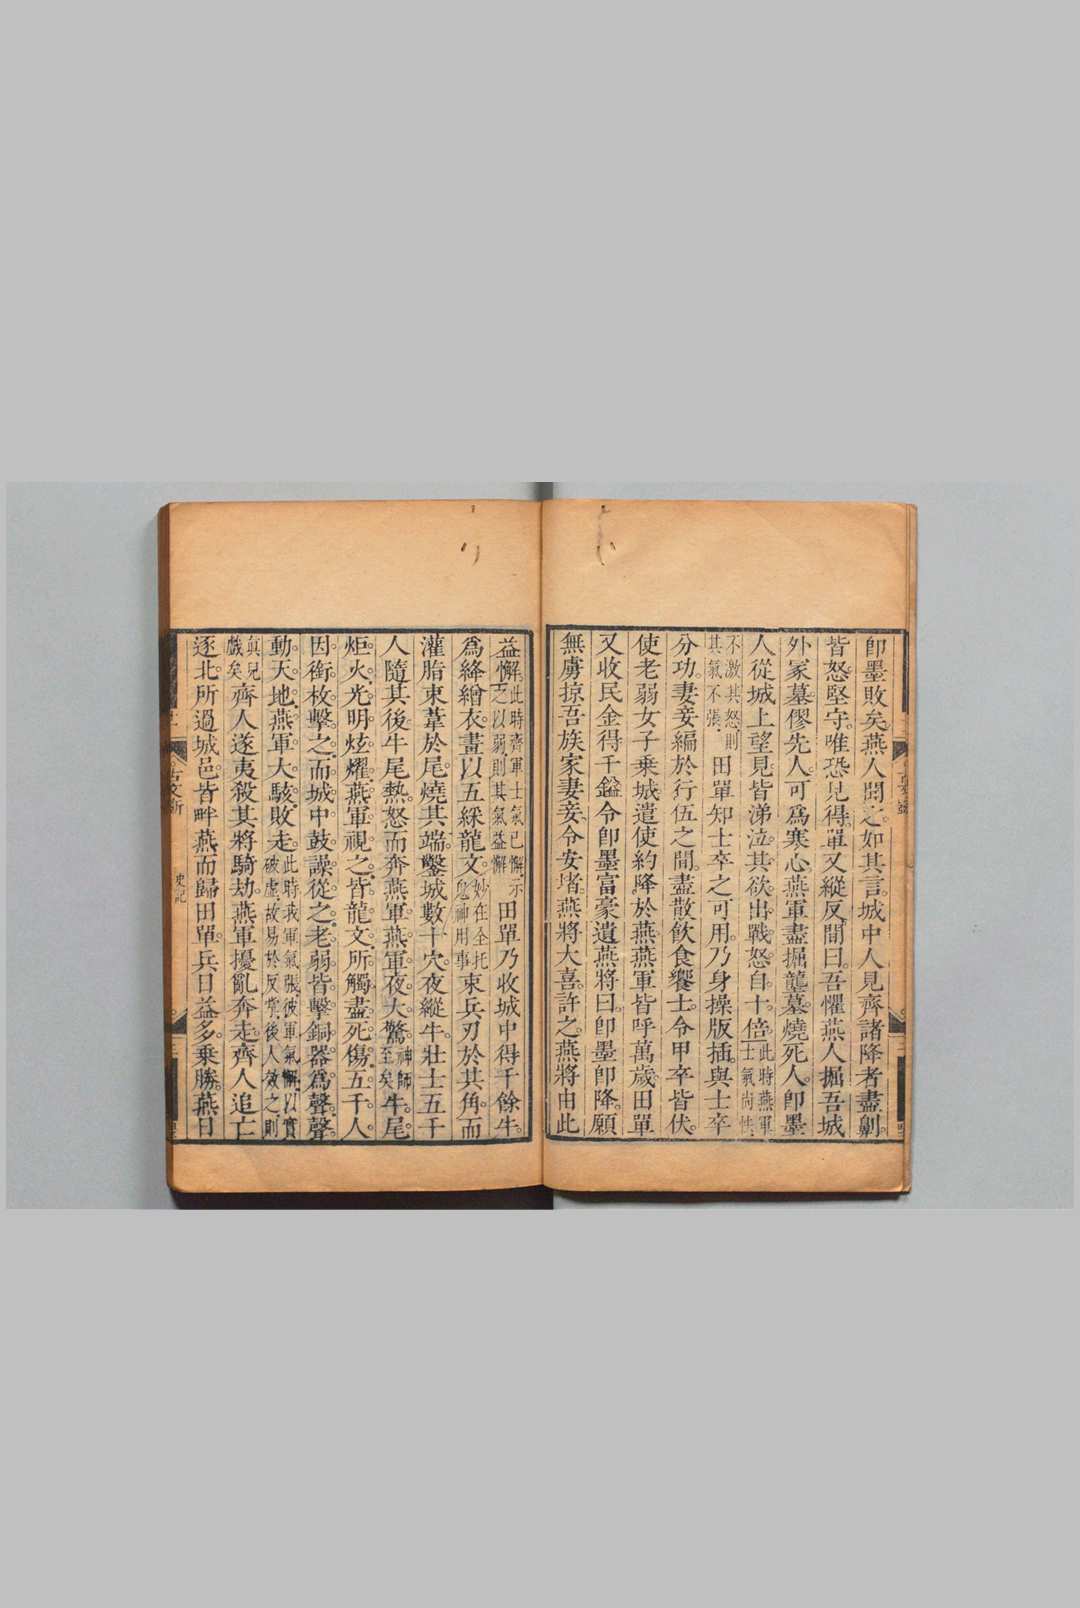 即墨敗矣燕人聞之如其言城中人見齊諸降者盡劓
皆怒堅守唯恐見得單又縱反間曰吾懼燕人掘吾城
外冢墓僇先人可爲寒心燕軍盡掘壟墓燒死人即墨
人從城上望見皆涕泣其欲出戰怒自十倍此時燕軍士氣尚性
不激其怒則其氣不張田單知士卒之可用乃身操版插與士卒
分功妻妾編於行伍之間盡散飲食饗士令甲卒皆伏
使老弱女子乗城遣使約降於燕燕軍皆呼萬歲田單
又收民金得千鎰令即墨富豪遺燕將曰即墨即降願
無虜掠吾族家妻妾令安堵燕將大喜許之燕將由此
益懈此時齊軍士氣已懈示之以弱則其氣益懈田單乃收城中得千餘牛
爲絳繒衣畫以五綵龍文妙在全托鬼神用事束兵刃於其角而
灌脂束葦於尾燒其端鑿城數十穴夜縱牛壯士五千
人隨其後牛尾熱怒而奔燕軍燕軍夜大驚神師至矣牛尾
炬火光明炫燿燕軍視之皆龍文所觸盡死傷五千人
因銜枚擊之而城中鼓譟從之老弱皆擊銅器爲聲聲
動天地燕軍大駭敗走此時我軍氣張彼軍氣懈以實破虛故易於反掌後人效之則
眞兒戲矣齊人遂夷殺其將騎劫燕軍擾亂奔走齊人追亡
逐北所過城邑皆畔燕而歸田單兵日益多乗勝燕日
史記